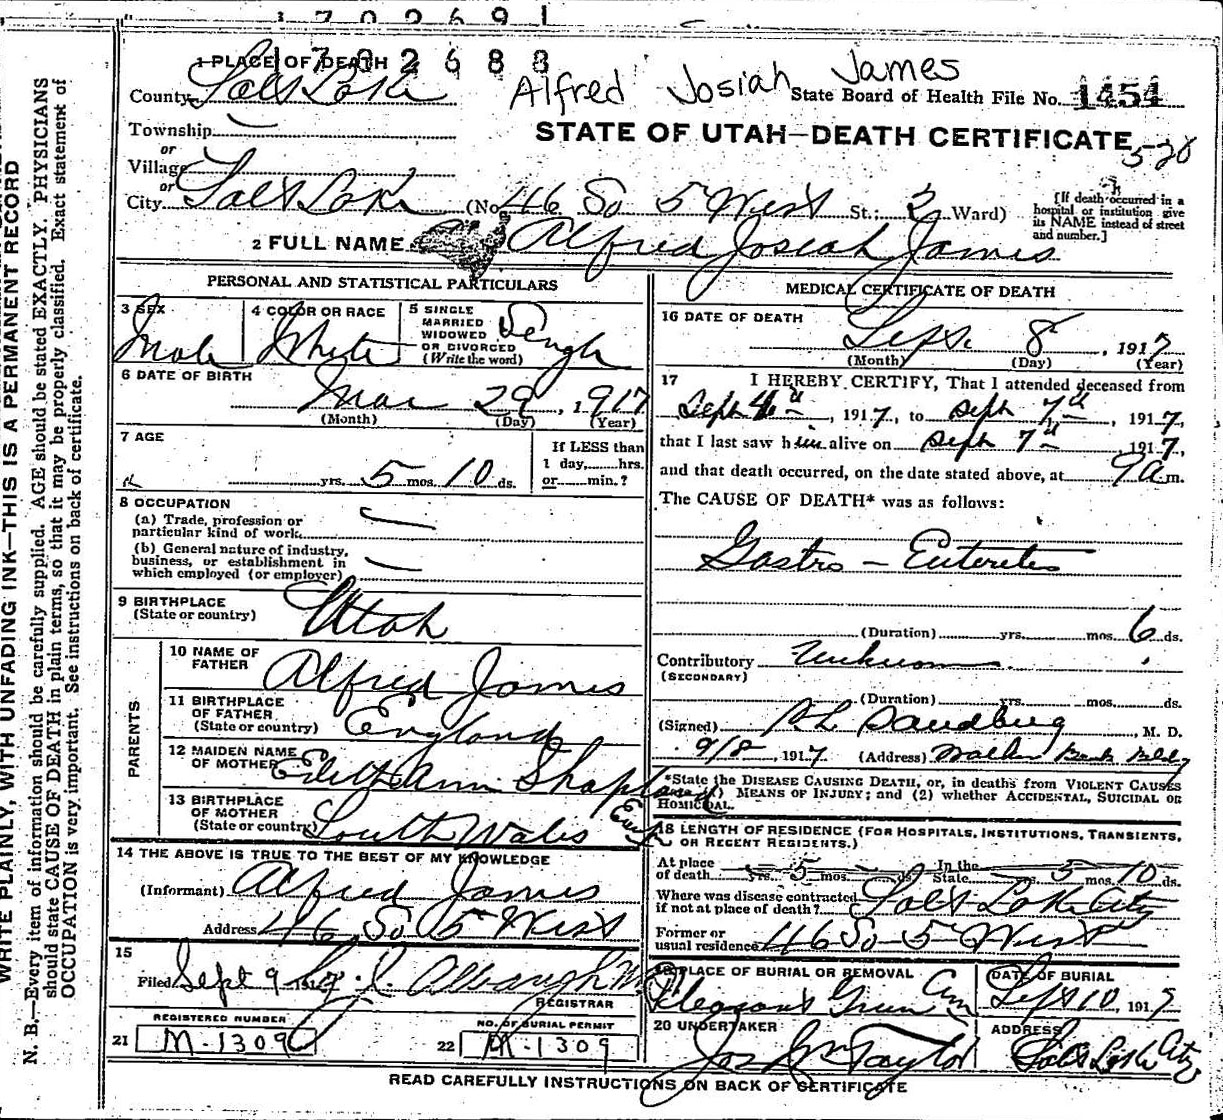 1702691
1702688
1 PLACE OF DEATH
County Salt Lake
Alfred Josiah James
State Board of Health File No. 1454
Township
or
STATE OF UTAH—DEATH CERTIFICATE
Village
or
City Salt Lake (No. 46 So 5 West St.; 2 Ward)
[If death occurred in a
hospital or institution give
its NAME instead of street
and number.]
2 FULL NAME Alfred Josiah James
PERSONAL AND STATISTICAL PARTICULARS
3 SEX
Male
4 COLOR OR RACE
White
5 SINGLE
MARRIED
WIDOWED
OR DIVORCED
(Write the word)
Single
6 DATE OF BIRTH
Mar 29, 1917
(Month) (Day) (Year)
7 AGE
yrs. 5 mos. 10 ds.
If LESS than
1 day,......hrs.
or......min.?
8 OCCUPATION
(a) Trade, profession or
particular kind of work
(b) General nature of industry,
business, or establishment in
which employed (or employer)
9 BIRTHPLACE
(State or country) Utah
PARENTS
10 NAME OF
FATHER Alfred James
11 BIRTHPLACE
OF FATHER
(State or country) England
12 MAIDEN NAME
OF MOTHER Edith Ann
13 BIRTHPLACE
OF MOTHER
(State or country) South Wales Eng
14 THE ABOVE IS TRUE TO THE BEST OF MY KNOWLEDGE
(Informant) Alfred James
Address 46 So 5 West
15
Filed Sept 9 191
REGISTRAR
REGISTERED NUMBER
21 M-1309
NO. OF BURIAL PERMIT
22 M-1309
MEDICAL CERTIFICATE OF DEATH
16 DATE OF DEATH
Sept. 8, 1917
(Month) (Day) (Year)
17 I HEREBY CERTIFY, That I attended deceased from
Sept 4th, 1917, to Sept 7th, 1917,
that I last saw him alive on Sept 7th 1917,
and that death occurred, on the date stated above, at 9 a m.
The CAUSE OF DEATH* was as follows:
Gastro - Enteretis
(Duration) yrs. mos. 6 ds.
Contributory Unknown
(SECONDARY)
(Duration) yrs. mos. ds.
(Signed) Sandberg, M. D.
9/8, 1917 (Address) Walker Bank Bldg
*State the DISEASE CAUSING DEATH, or, in deaths from VIOLENT CAUSES
MEANS OF INJURY; and (2) whether ACCIDENTAL, SUICIDAL OR
HOMICIDAL.
18 LENGTH OF RESIDENCE (FOR HOSPITALS, INSTITUTIONS, TRANSIENTS,
OR RECENT RESIDENTS.)
At place
of death yrs. 5 mos. ds.
In the
State yrs. 5 mos. 10 ds.
Where was disease contracted
if not at place of death? Salt Lake City
Former or
usual residence 46 So 5 West
19 PLACE OF BURIAL OR REMOVAL
Pleasant Green Cem
DATE OF BURIAL
Sept 10, 1917
20 UNDERTAKER
Jos Wm Taylor
ADDRESS
Salt Lake City
READ CAREFULLY INSTRUCTIONS ON BACK OF CERTIFICATE
WRITE PLAINLY, WITH UNFADING INK—THIS IS A PERMANENT RECORD
N. B.—Every item of information should be carefully supplied. AGE should be stated EXACTLY. PHYSICIANS
should state CAUSE OF DEATH in plain terms, so that it may be properly classified. Exact statement of
OCCUPATION is very important. See instructions on back of certificate.